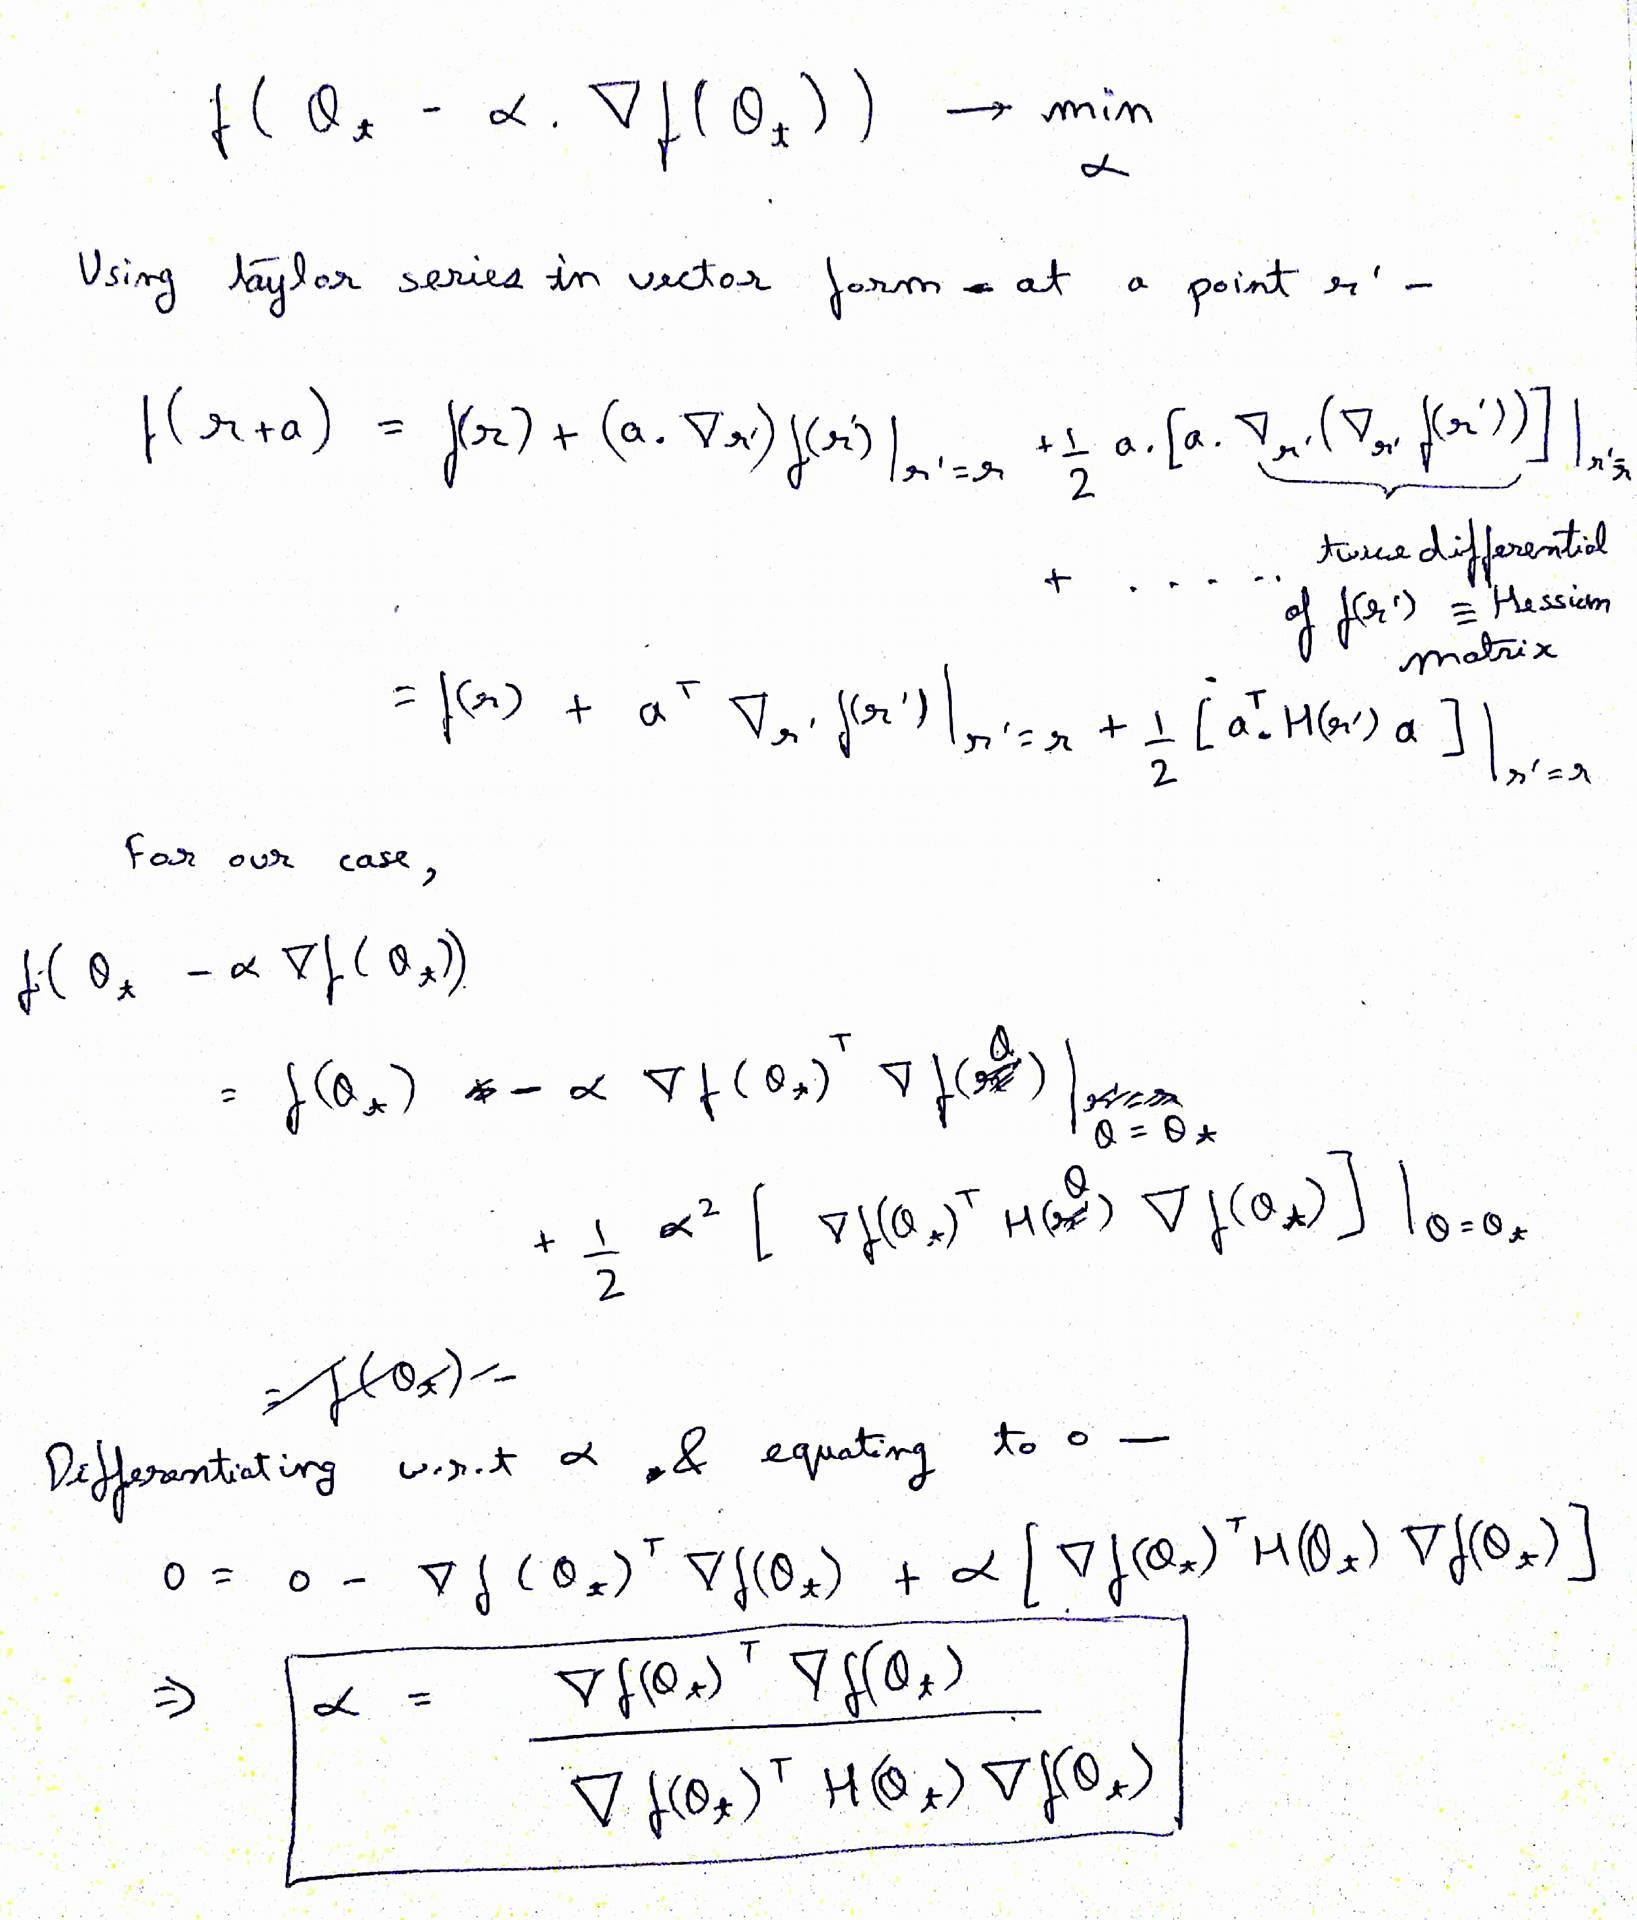 f( θ* - α. ∇f(θ*)) → min
α
Using taylor series in vector form - at a point r' -
f(r+a) = f(r) + (a. ∇r') f(r') |r'=r + 1/2 a. [a. ∇r' (∇r' f(r'))] |r'=r
+ ...... twice differential
of f(r') ≡ Hessian
matrix
= f(r) + aᵀ ∇r' f(r') |r'=r + 1/2 [aᵀ. H(r') a ] |r'=r
For our case,
f( θ* - α ∇f( θ*))
= f(θ*) - α ∇f(θ*)ᵀ ∇f(θ) |
θ = θ*
+ 1/2 α² [ ∇f(θ*)ᵀ H(θ) ∇f(θ*) ] |θ=θ*
= f(θ*) -
Differentiating w.r.t α & equating to 0 —
0 = 0 - ∇f(θ*)ᵀ ∇f(θ*) + α [ ∇f(θ*)ᵀ H(θ*) ∇f(θ*) ]
⇒ α = ∇f(θ*)ᵀ ∇f(θ*)
∇f(θ*)ᵀ H(θ*) ∇f(θ*)